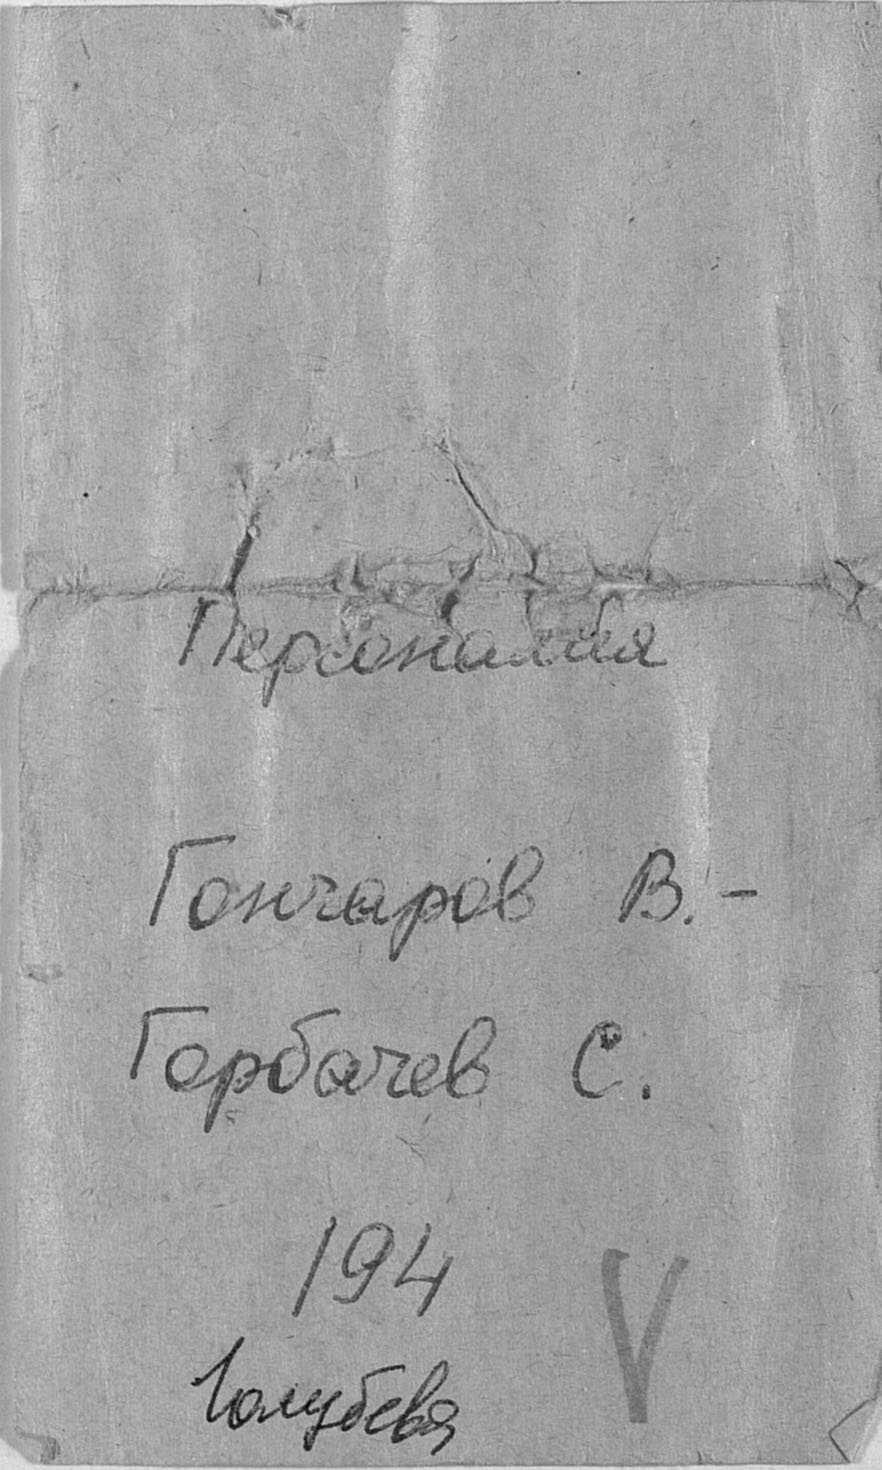 Персоналия
Гончаров В. -
Горбачев С.
194
V
Голубева